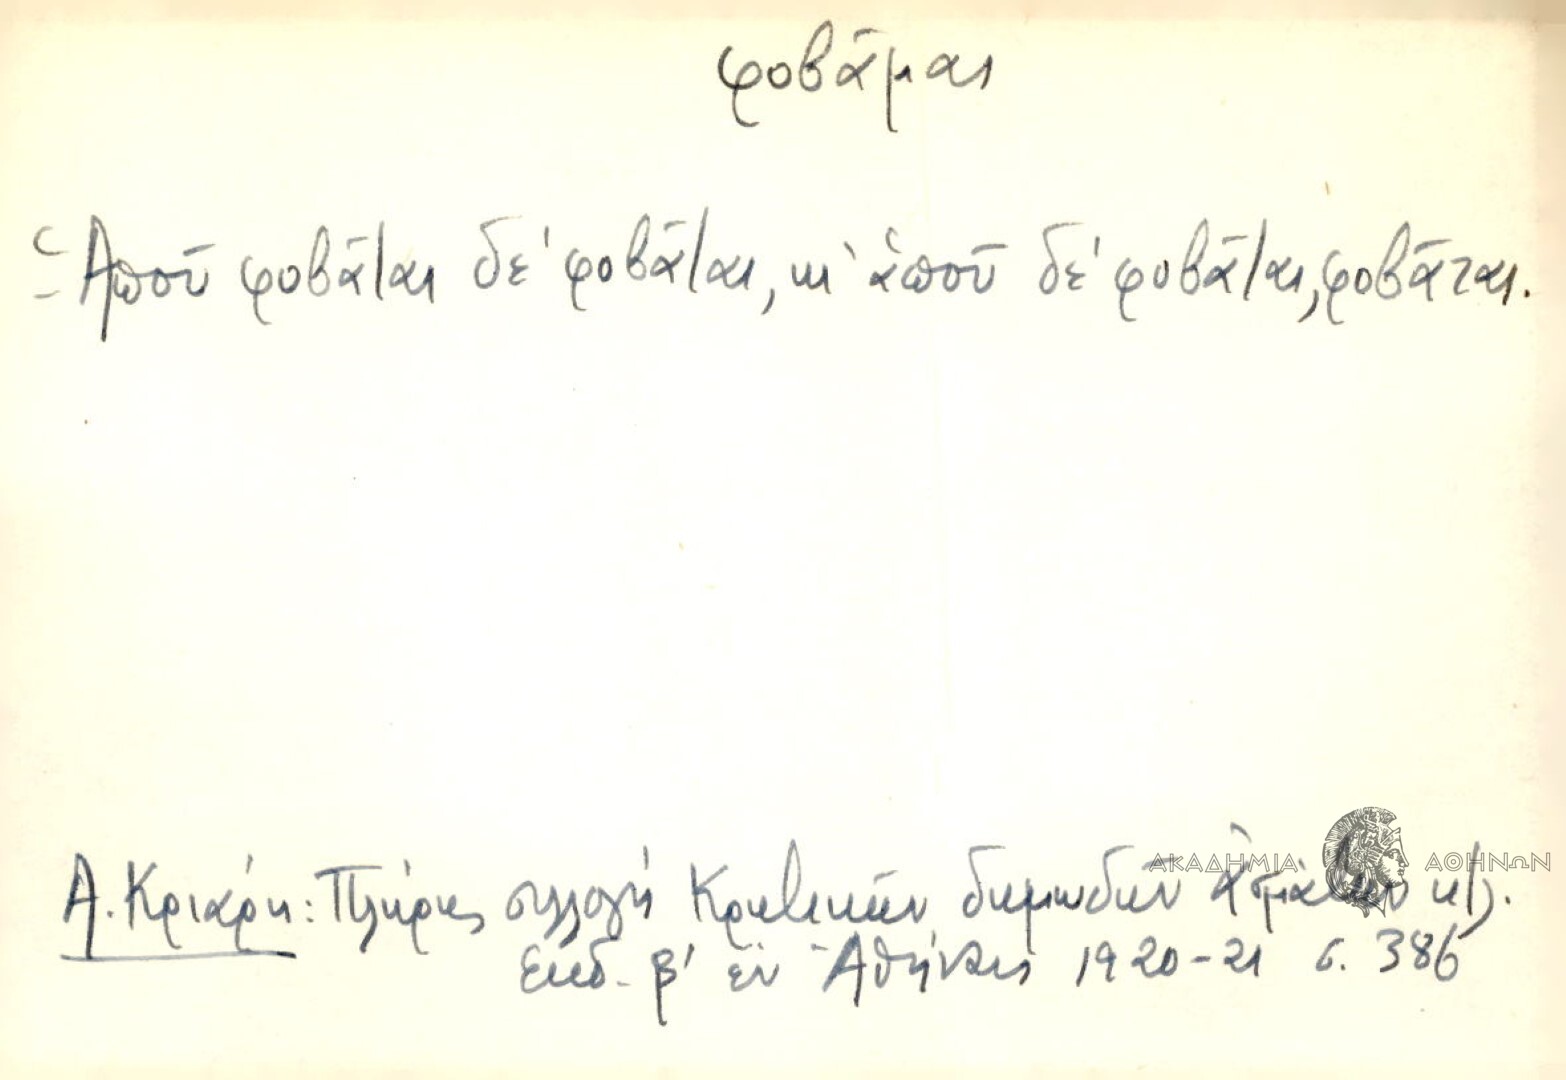 φοβᾶμαι
Ἀποῦ φοβᾶται δὲ φοβᾶται, κι ἀποῦ δὲ φοβᾶται, φοβᾶται.
Α. Κριάρη: Πλήρης συλλογὴ Κρητικῶν δημωδῶν ᾀσμάτων κτλ.
ΑΚΑΔΗΜΙΑ ΑΘΗΝΩΝ
ἔκδ. β' ἐν Ἀθήναις 1920-21 σ. 386